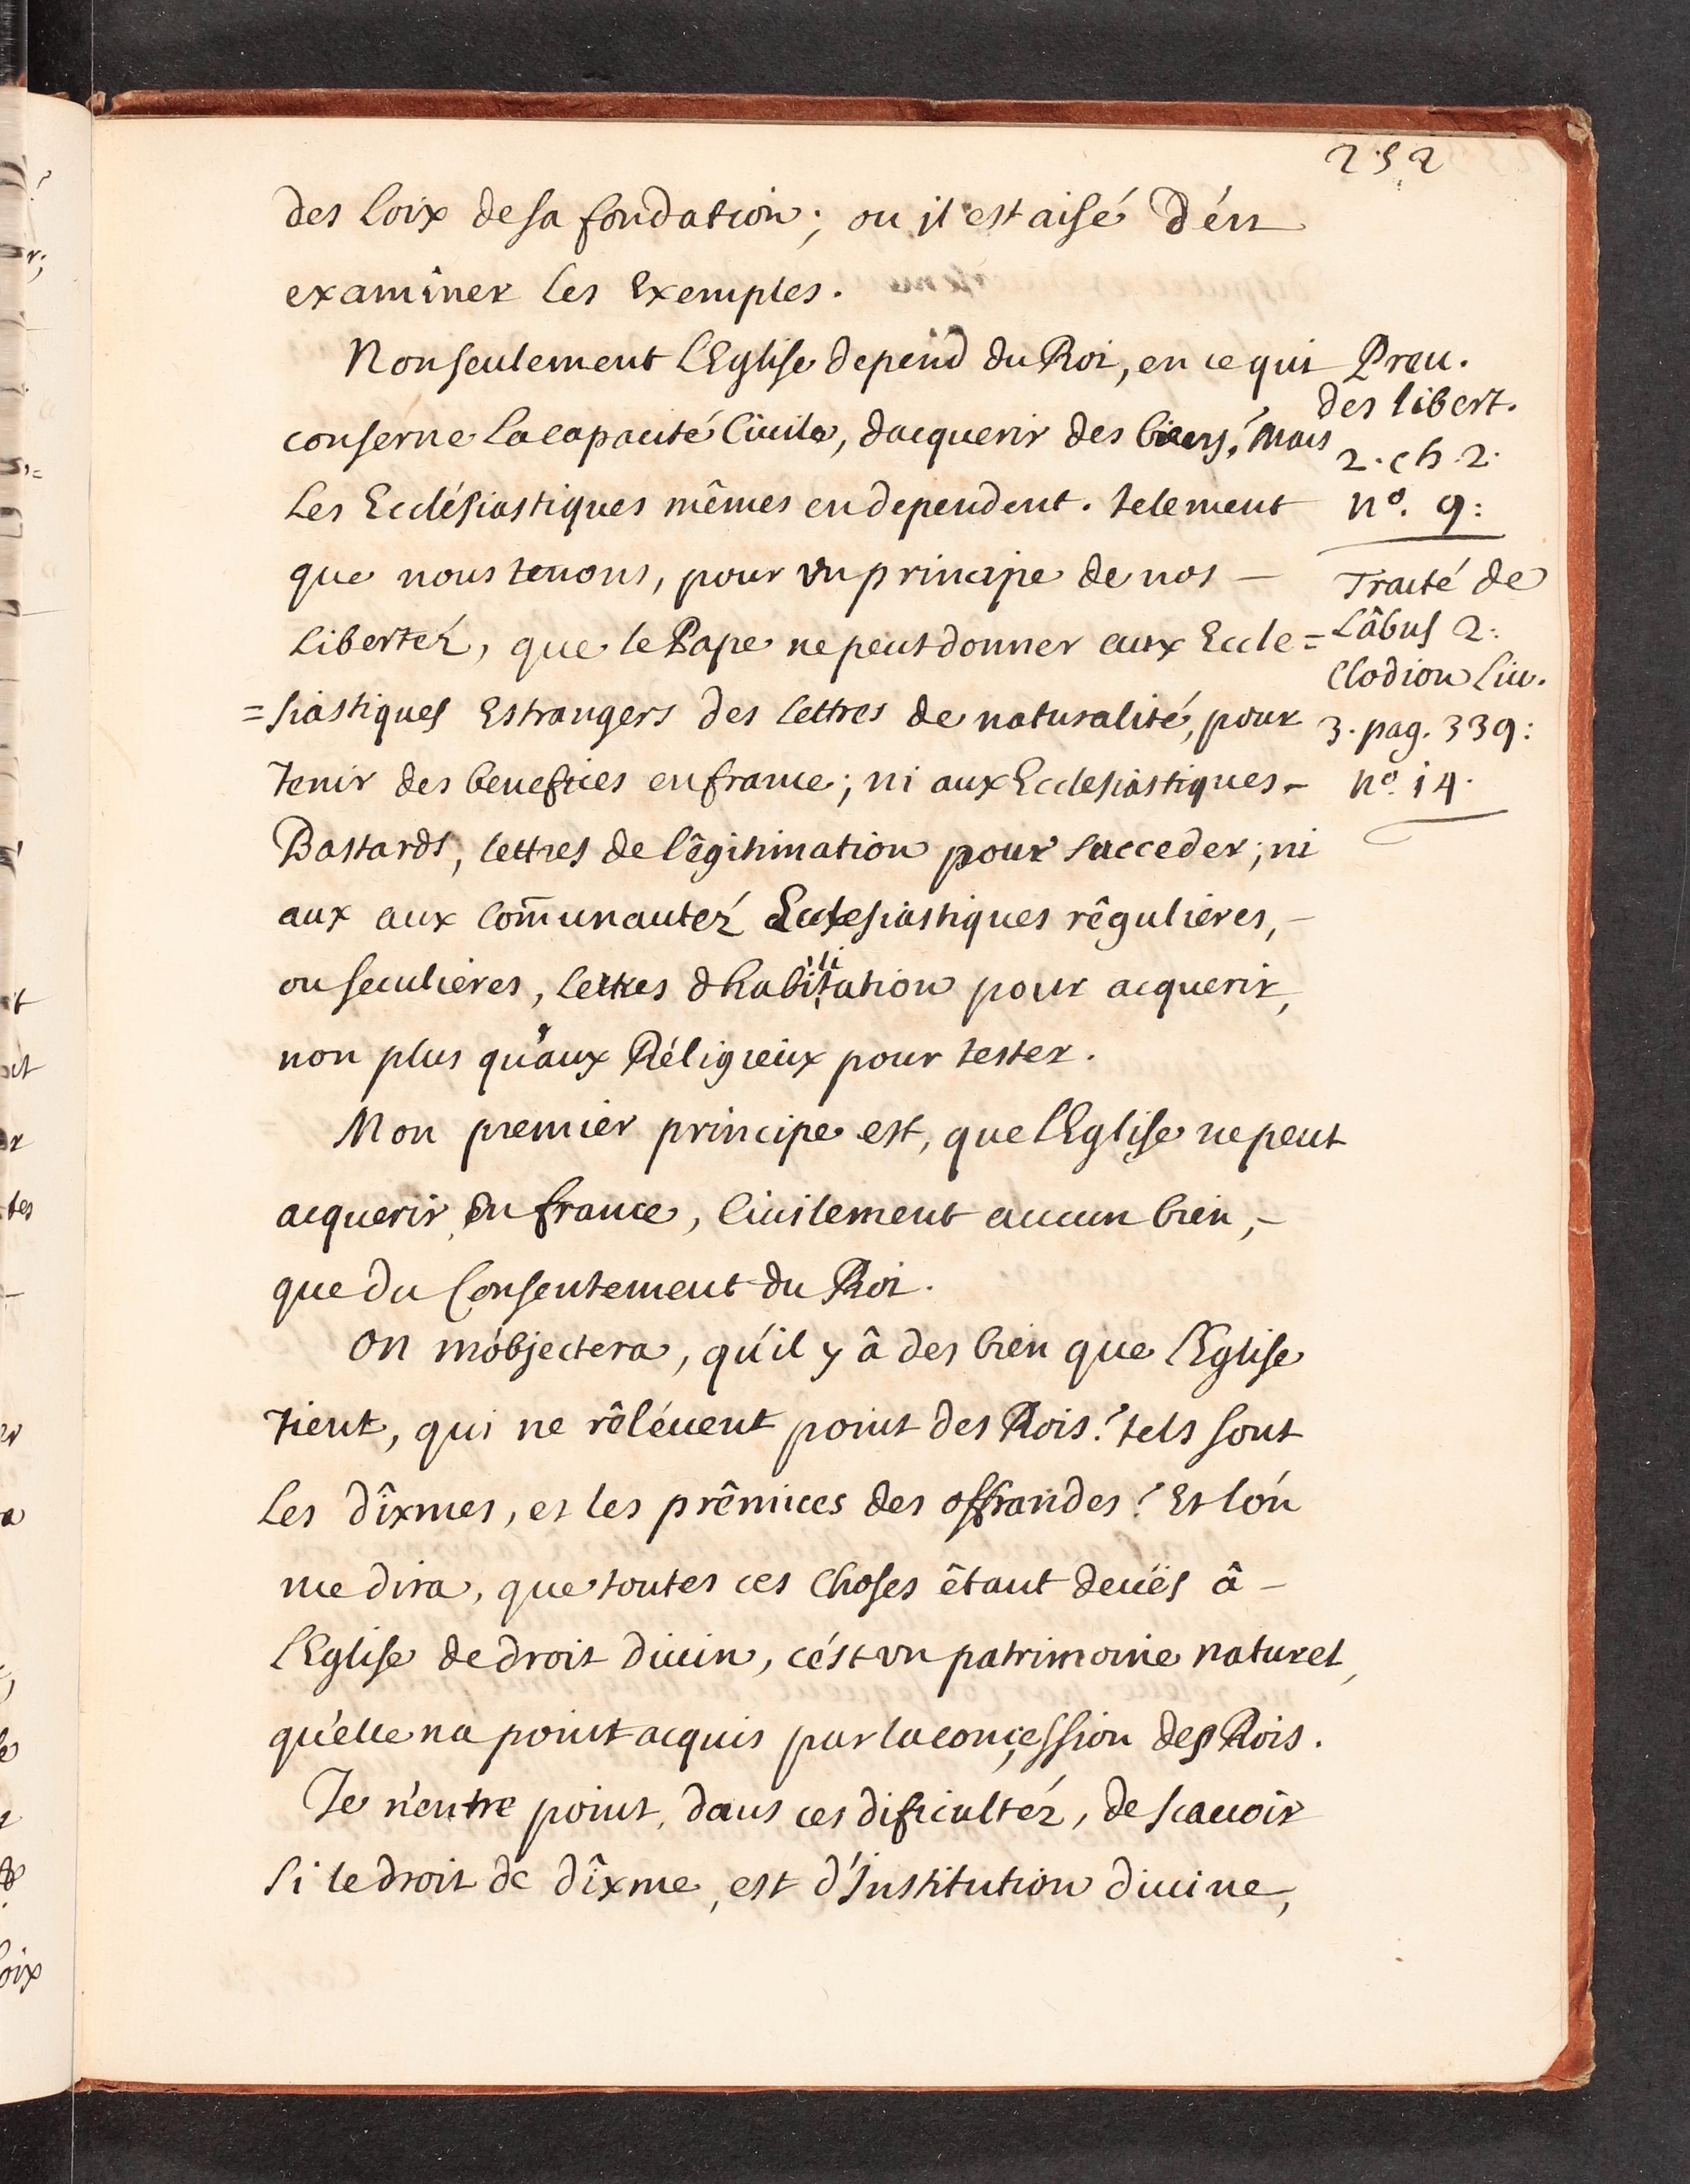 252
des loix de sa fondation; ou il est aisé d'én
examiner les Exemples.
Non seulement l'Eglise depend du Roi, en ce qui
conserne la capacité Civile, dacquerir des biens, mais
les Ecclésiastiques mêmes en dependent. telement
que nous tenons, pour vn principe de nos –
libertéz, que le Pape ne peut donner aux Eccle=
=siastiques Estrangers des lettres de naturalité, pour
tenir des benefices en france; ni aux Ecclesiastiques –
Bastards, lettres de lêgitimation pour succeder; ni
aux aux com̄unautéz Ecclesiastiques rêgulieres, –
ou seculieres, lettres dhabilitation pour acquerir,
non plus qu'aux Réligieux pour tester.
Mon premier principe est, que l'Eglise ne peut
acquerir, En france, Ciuilement aucun bien, –
que du Consentement du Roi.
On m'objectera, qu'il y â des bien que l'Eglise
tient, qui ne rêléuent point des Rois? tels sont
les dîxmes, et les prêmices des offrandes? Et lón
me dira, que toutes ces choses êtant deuës â –
l'Eglise de droit diuin, cést vn patrimoine naturel,
qu'elle na point acquis par la conçession des Rois.
Je n'entre point, dans ces dificultéz, de scauoir
si le droit de dîxme, est d'Institution diuine,
Preu.
des libert.
2. ch. 2.
nº. 9:
Traité de
Lâbus 2:
Clodion Liu.
3. pag. 339:
nº. 14.